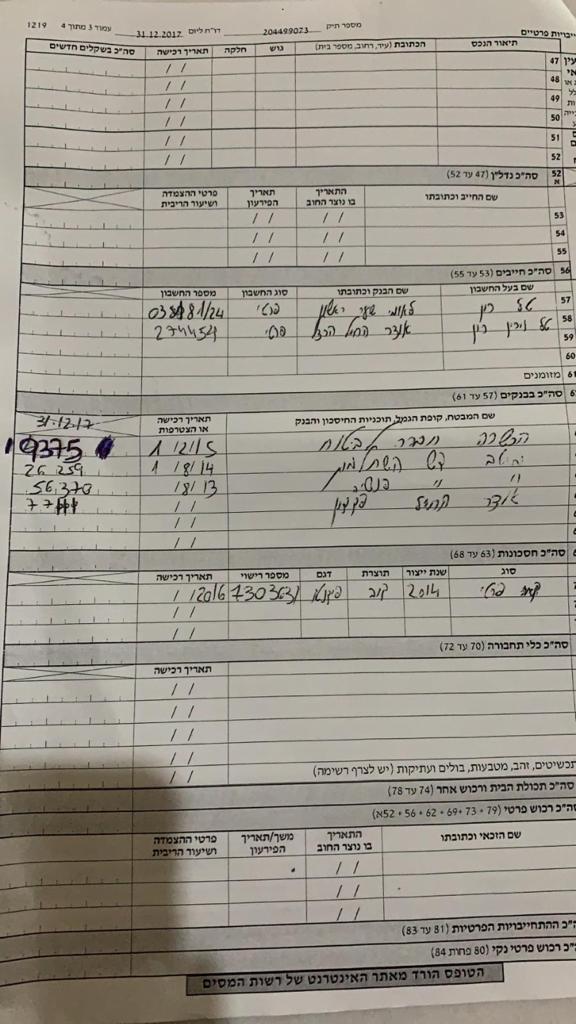 1219 עמוד 3 מתוך 4 דו"ח ליום 31.12.2017 מספר תיק 204499073 יבויות פרטיים
תיאור הנכס הכתובת (עיר, רחוב, מספר בית) גוש חלקה תאריך רכישה סה"כ בשקלים חדשים
47 / /
48 / /
49 / /
50 / /
51 / /
52 / /
52א סה"כ נדל"ן (47 עד 52)
שם החייב וכתובתו התאריך בו נוצר החוב תאריך הפירעון פרטי ההצמדה ושיעור הריבית
53 / / / /
54 / / / /
55 / / / /
56 סה"כ חייבים (53 עד 55)
שם בעל החשבון שם הבנק וכתובתו סוג חשבון מספר החשבון
57 טל לאומי שער ראשון פרטי
58 טל אוצר החייל פרטי 274454
59
60
מזומנים
סה"כ בבנקים (57 עד 61)
שם המבטח, קופת הגמל, תוכניות החיסכון והבנק תאריך רכישה או הצטרפות 31.12.17
הכשרה חברה לביטוח 1 12/15 19375
השתלמות 1 /8/14 26 259
" " פנסיה /8/13 56.370
אוצר החייל / /
/ /
סה"כ חסכונות (63 עד 68)
סוג שנת ייצור תוצרת דגם מספר רישוי תאריך רכישה
פרטי 2014 פיקנטו 7303631 / /2016
/ /
/ /
סה"כ כלי תחבורה (70 עד 72)
תאריך רכישה
/ /
/ /
/ /
/ /
תכשיטים, זהב, מטבעות, בולים ועתיקות (יש לצרף רשימה) / /
סה"כ תכולת הבית ורכוש אחר (74 עד 78)
סה"כ רכוש פרטי (79 + 73 + 69 + 62 + 56 + 52א)
שם הזכאי וכתובתו התאריך בו נוצר החוב משך/תאריך הפירעון פרטי ההצמדה ושיעור הריבית
/ /
/ /
/ /
"כ ההתחייבויות הפרטיות (81 עד 83)
"כ רכוש פרטי נקי (80 פחות 84)
הטופס הורד מאתר האינטרנט של רשות המסים